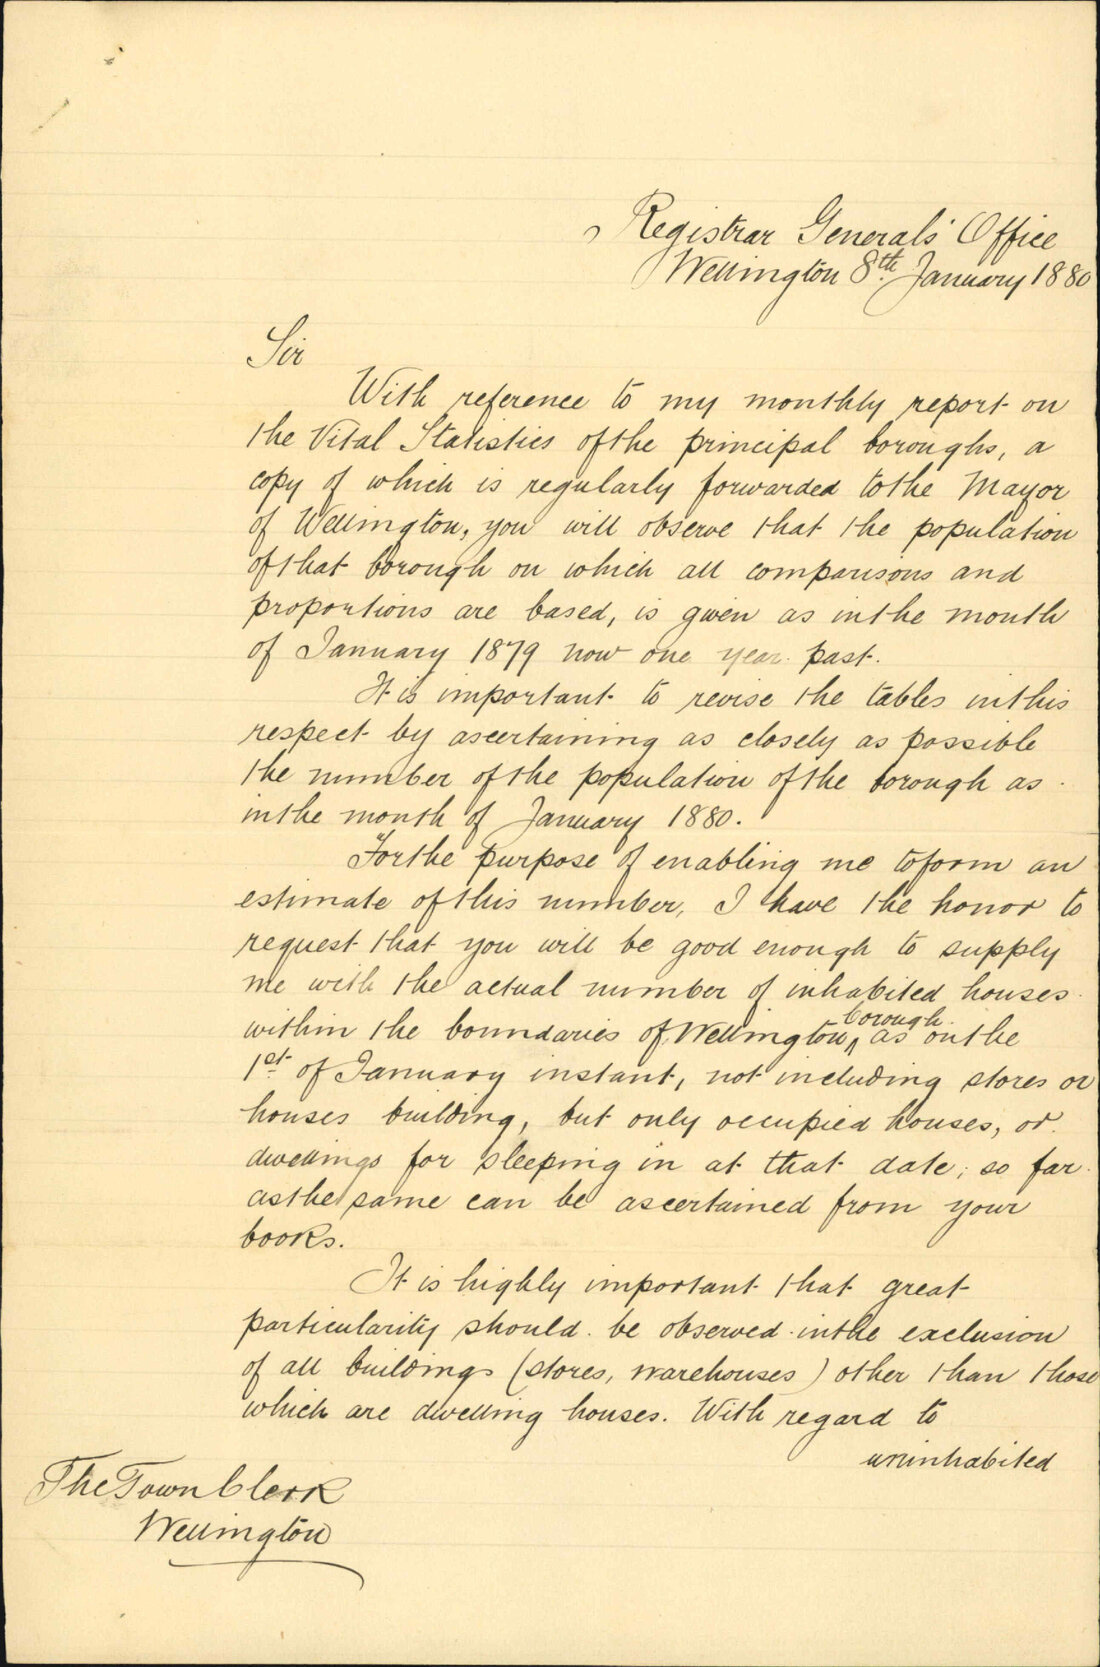 Registrar Generals' Office
Wellington 8th January 1880
Sir
With reference to my monthly report on
the Vital Statistics of the principal boroughs, a
copy of which is regularly forwarded to the Mayor
of Wellington, you will observe that the population
of that borough on which all comparisons and
proportions are based, is given as in the month
of January 1879 now one year past.
It is important to revise the tables in this
respect by ascertaining as closely as possible
the number of the population of the borough as
in the month of January 1880.
For the purpose of enabling me to form an
estimate of this number, I have the honor to
request that you will be good enough to supply
me with the actual number of inhabited houses
within the boundaries of Wellington borough as on the
1st of January instant, not including stores or
houses building, but only occupied houses, or
dwellings for sleeping in at that date; so far
as the same can be ascertained from your
books.
It is highly important that great
particularity should be observed in the exclusion
of all buildings (stores, warehouses) other than those
which are dwelling houses. With regard to
uninhabited
The Town Clerk
Wellington